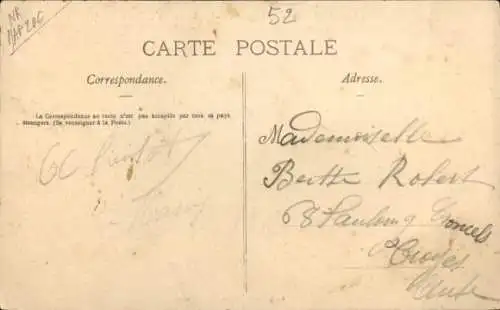 52
CARTE POSTALE
Correspondance.
Adresse.
La Correspondance au recto n'est pas acceptée par tous les pays
étrangers. (Se renseigner à la Poste.)
Mademoiselle
Berthe Robert
68 Faubourg Croncels
Troyes
Aube